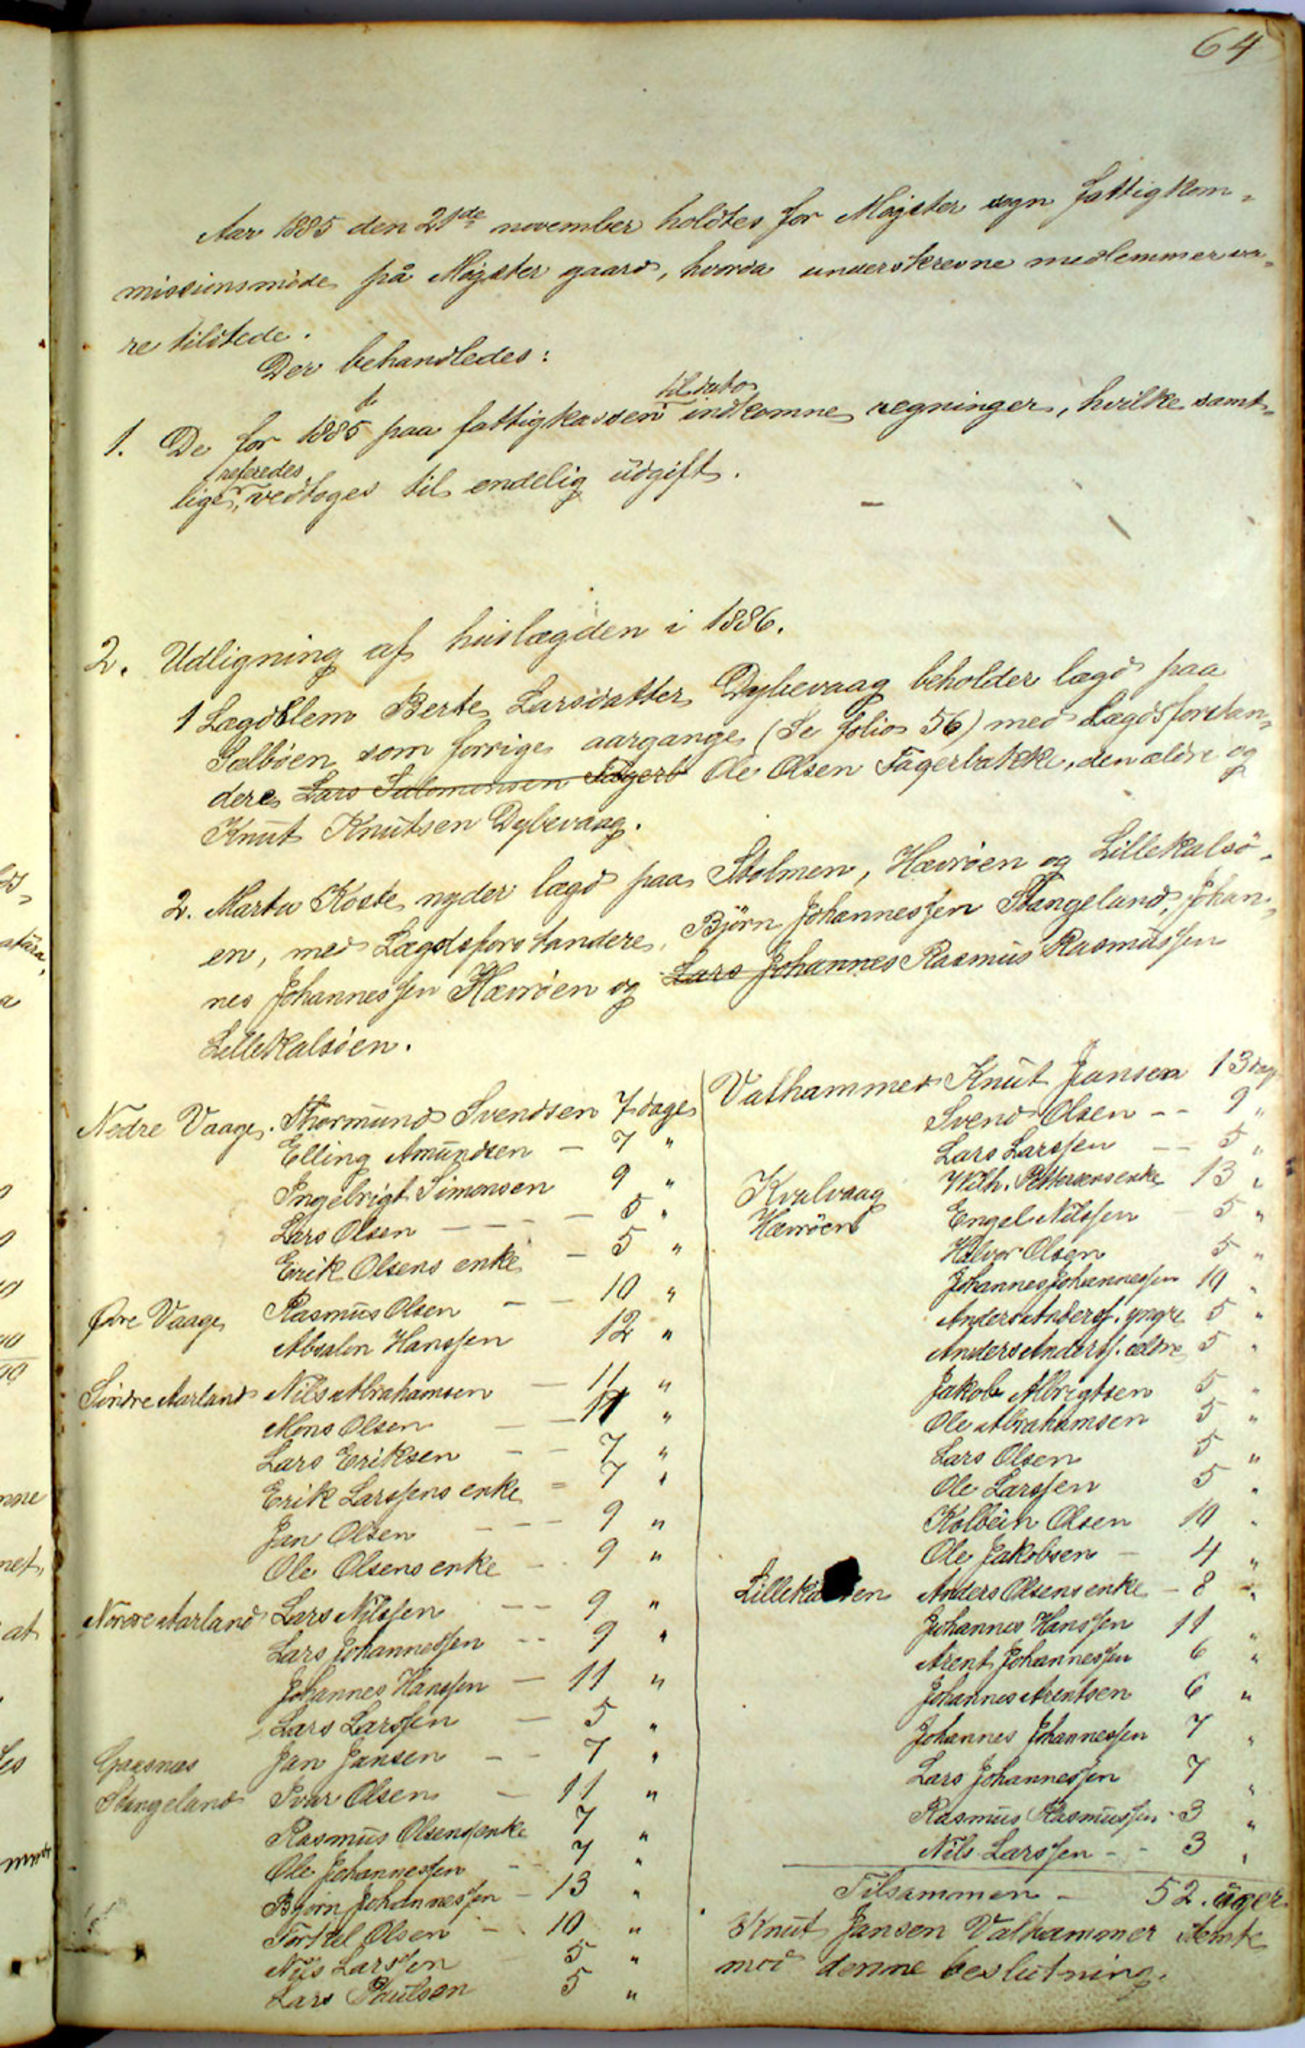 64
Aar 1885 den 21de november holdtes for Møgster sogn fattigkom-
missionsmøde på Møgster gaard, hvorda underskrevne medlemmer va-
re tilstede.
Der behandledes:
1. De for 1885 paa fattigkassen til dato indkomne regninger, hvilke samt-
lige, referedes vedtoges til endelig udgift.
2. Udligning af huslægden i 1886.
1 Lægdslem Berte Larsdatter Dybevaag beholder lægd paa
Selbøen som forrige aargange (Se folio 56) med Lægdsforstan-
dere Lars Salomonsen Fagerb Ole Olsen Fagerbakke, den ældre og
Knut Knutsen Dybevaag.
2. Marta Koste nyder lægd paa Stolmen, Hevrøen og Lillekalsø-
en, med Lægdsforstandere, Bjørn Johannessen Stangeland, Johan-
nes Johannessen Hevrøen og Lars Johannes Rasmus Rasmussen
Lillekalsøen.
Nedre Vaage. Thormund Svendsen 7 dage
Elling Amundsen — 7 "
Ingebrigt Simonsen 9 "
Lars Olsen — — — 5 "
Erik Olsens enke — 5 "
Øvre Vaage Rasmus Olsen — — 10 "
Absalon Hanssen 12 "
Søndre Aarland Nils Abrahamsen — 11 "
Mons Olsen — — 11 "
Lars Eriksen — — 7 "
Erik Larssens enke — 7 "
Jan Olsen — — — 9 "
Ole Olsens enke — 9 "
Nordre Aarland Lars Nilssen — — 9 "
Lars Johannessen — — 9 "
Johannes Hanssen — 11 "
Lars Larssen — 5 "
Gaasnes Jan Jansen — — 7 "
Stangeland Ivar Olsen — 11 "
Rasmus Olsens enke 7 "
Ole Johannessen — 7 "
Bjørn Johannessen — 13 "
Torkel Olsen — 10 "
Nils Larssen 5 "
Lars Poulsen 5 "
Valhammer Knut Jansen 13 dag
Svend Olsen — — 9 "
Lars Larssen — — 5 "
Kvalvaag Wilh. Pettersens enke 13 "
Hevrøen Engel Nilssen — 5 "
Halvor Olsen 5 "
Johannes Johannessen 10 "
Anders Anderss. yngre 5 "
Anders Anderss. ældre 5 "
Jakob Albrigtsen 5 "
Ole Abrahamsen 5 "
Lars Olsen 5 "
Ole Larssen 5 "
Kolbein Olsen 10 "
Ole Jakobsen — 4 "
Anders Olsens enke — 8 "
Johannes Hanssen 11 "
Arent Johannessen 6 "
Johannes Arentsen 6 "
Johannes Johannessen 7 "
Lars Johannessen 7 "
Rasmus Rasmussen - 3 "
Nils Larssen - - 3 "
Tilsammen — 52. uger
Knut Jansen Valhammer stemte
mod denne beslutning.